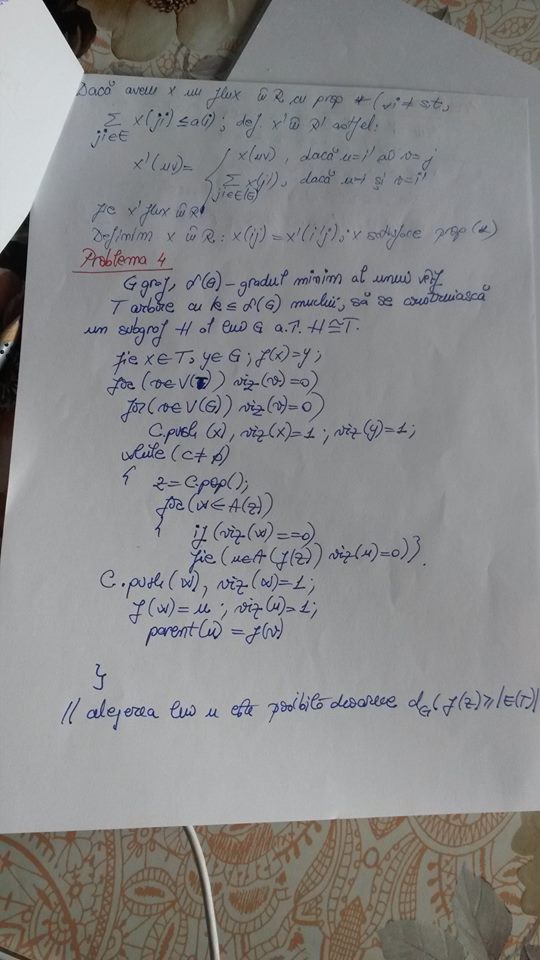 Dacă avem x un flux în R cu prop * (∀i ≠ s,t,
∑ x(ji) ≤ a(i); def. x' în R' astfel:
ji∈E
x'(uv) = { x(uv), dacă u=i' și v=j
∑ x(ji), dacă u=i și v=i'
ji∈E(G)
fie x' flux în R'
Definim x în R: x(ij) = x'(i'j); x satisface prop (*)
Problema 4
G graf, δ(G) - gradul minim al unui vârf
T arbore cu k ≤ δ(G) muchii, să se construiască
un subgraf H al lui G a.î. H ≅ T.
fie x∈T, y∈G; f(x)=y;
for (v∈V(T)) viz(v)=0)
for(v∈V(G)) viz(v)=0)
C.push(x), viz(x)=1; viz(y)=1;
while (C≠∅)
{ z=C.pop();
for(w∈A(z))
{ if(viz(w)==0)
fie(u∈A(f(z)) viz(u)=0)}.
C.push(w), viz(w)=1;
f(w)=u; viz(u)=1;
parent(u) = f(v)
}
// alegerea lui u este posibilă deoarece d_G(f(z) ≥ |E(T)|